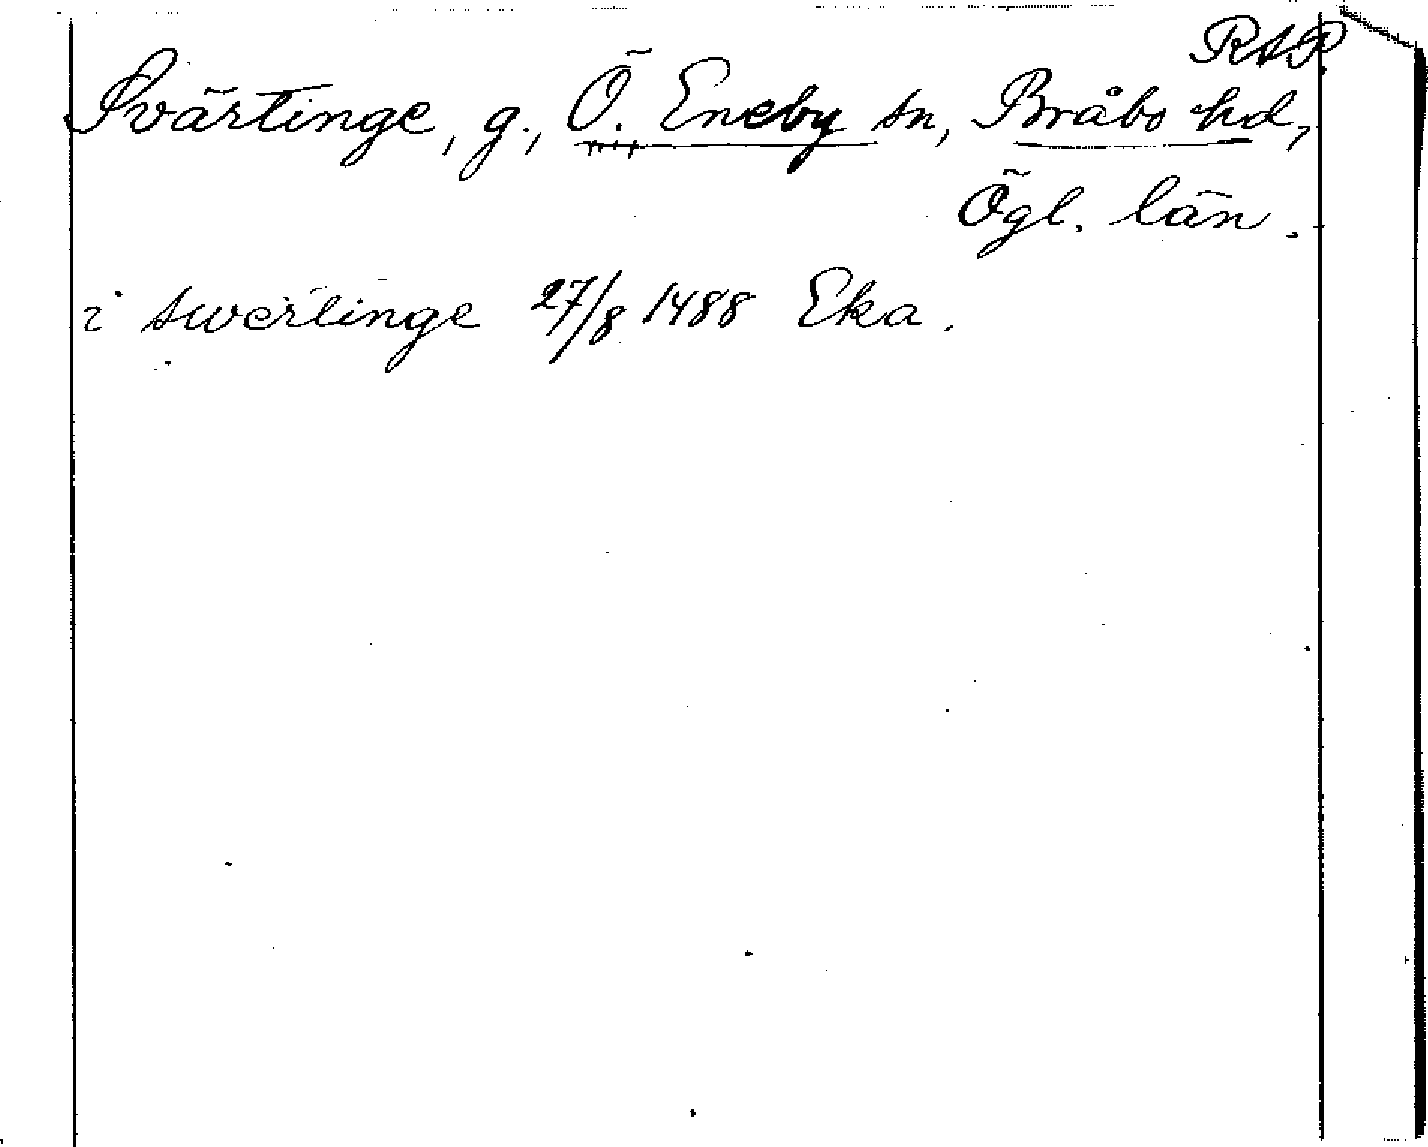 RAP
Svärtinge, g., Ö. Eneby sn, Bråbo hd,
Ögl. län.
i swertinge 27/8 1488 Eka.